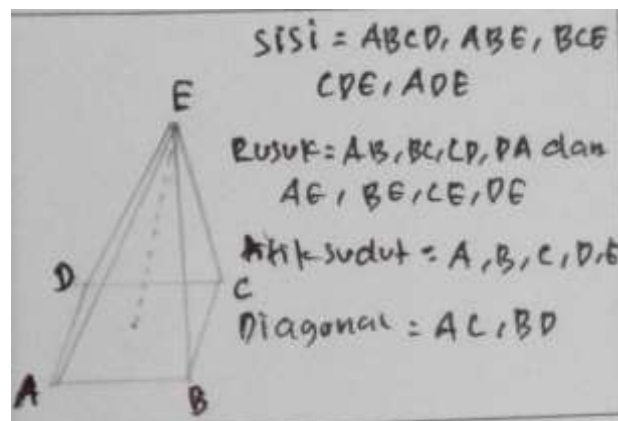 Sisi = ABCD, ABE, BCE
CDE, ADE
E
Rusuk = AB, BC, CD, DA dan
AE, BE, CE, DE
D
titik sudut = A, B, C, D, E
C
Diagonal = AC, BD
A
B